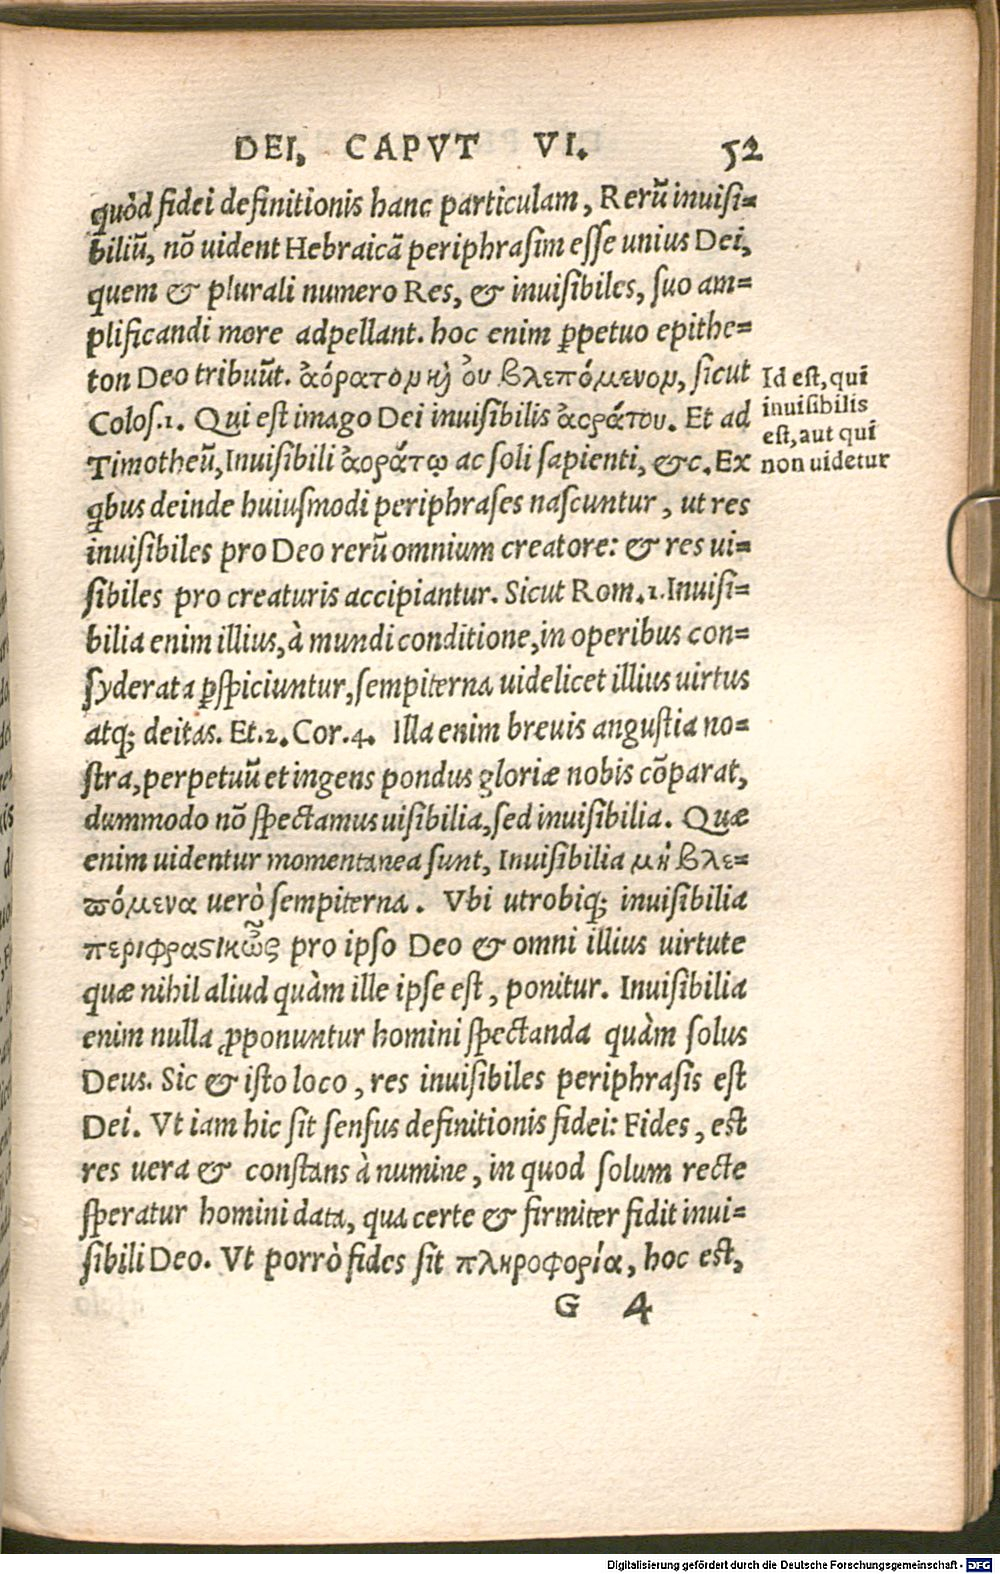 DEI, CAPVT VI. 52
quòd fidei definitionis hanc particulam, Rerū inuisi=
biliū, nō uident Hebraicā periphrasim esse unius Dei,
quem & plurali numero Res, & inuisibiles, suo am=
plificandi more adpellant. hoc enim ꝑpetuo epithe=
ton Deo tribuūt. ἀόρατον καὶ οὐ βλεπόμενον, sicut
Colos.1. Qui est imago Dei inuisibilis ἀοράτου. Et ad
Timotheū, Inuisibili ἀοράτῳ ac soli sapienti, &c. Ex
ꝗbus deinde huiusmodi periphrases nascuntur, ut res
inuisibiles pro Deo rerū omnium creatore: & res ui=
sibiles pro creaturis accipiantur. Sicut Rom.1. Inuisi=
bilia enim illius, à mundi conditione, in operibus con=
syderata ꝑspiciuntur, sempiterna uidelicet illius uirtus
atq; deitas. Et.2.Cor.4. Illa enim breuis angustia no=
stra, perpetuū et ingens pondus gloriæ nobis cōparat,
dummodo nō spectamus uisibilia, sed inuisibilia. Quæ
enim uidentur momentanea sunt, Inuisibilia μὴ βλε=
πόμενα uerò sempiterna. Vbi utrobiq; inuisibilia
περιφραστικῶς pro ipso Deo & omni illius uirtute
quæ nihil aliud quàm ille ipse est, ponitur. Inuisibilia
enim nulla ꝓponuntur homini spectanda quàm solus
Deus. Sic & isto loco, res inuisibiles periphrasis est
Dei. Vt iam hic sit sensus definitionis fidei: Fides, est
res uera & constans à numine, in quod solum recte
speratur homini data, qua certe & firmiter fidit inui=
sibili Deo. Vt porrò fides sit πληροφορία, hoc est,
G 4
Id est, quī
inuisibilis
est, aut quī
non uidetur
Digitalisierung gefördert durch die Deutsche Forschungsgemeinschaft - DFG